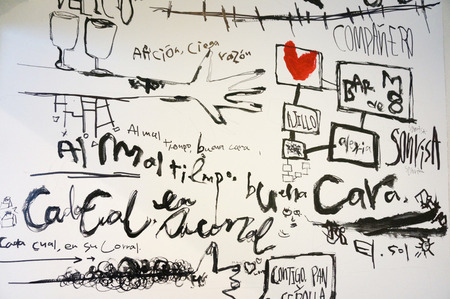 COMPAÑERO
AFICIÓN, Ciega razón
BAR
de
NILLO
alegría
SONRISA
Al mal tiempo, buena cara.
Al Mal tiempo. buena Cara.
Cada Cual. en su Corral
Cada cual, en su Corral.
El sol
CONTIGO, PAN
y CEBOLLA